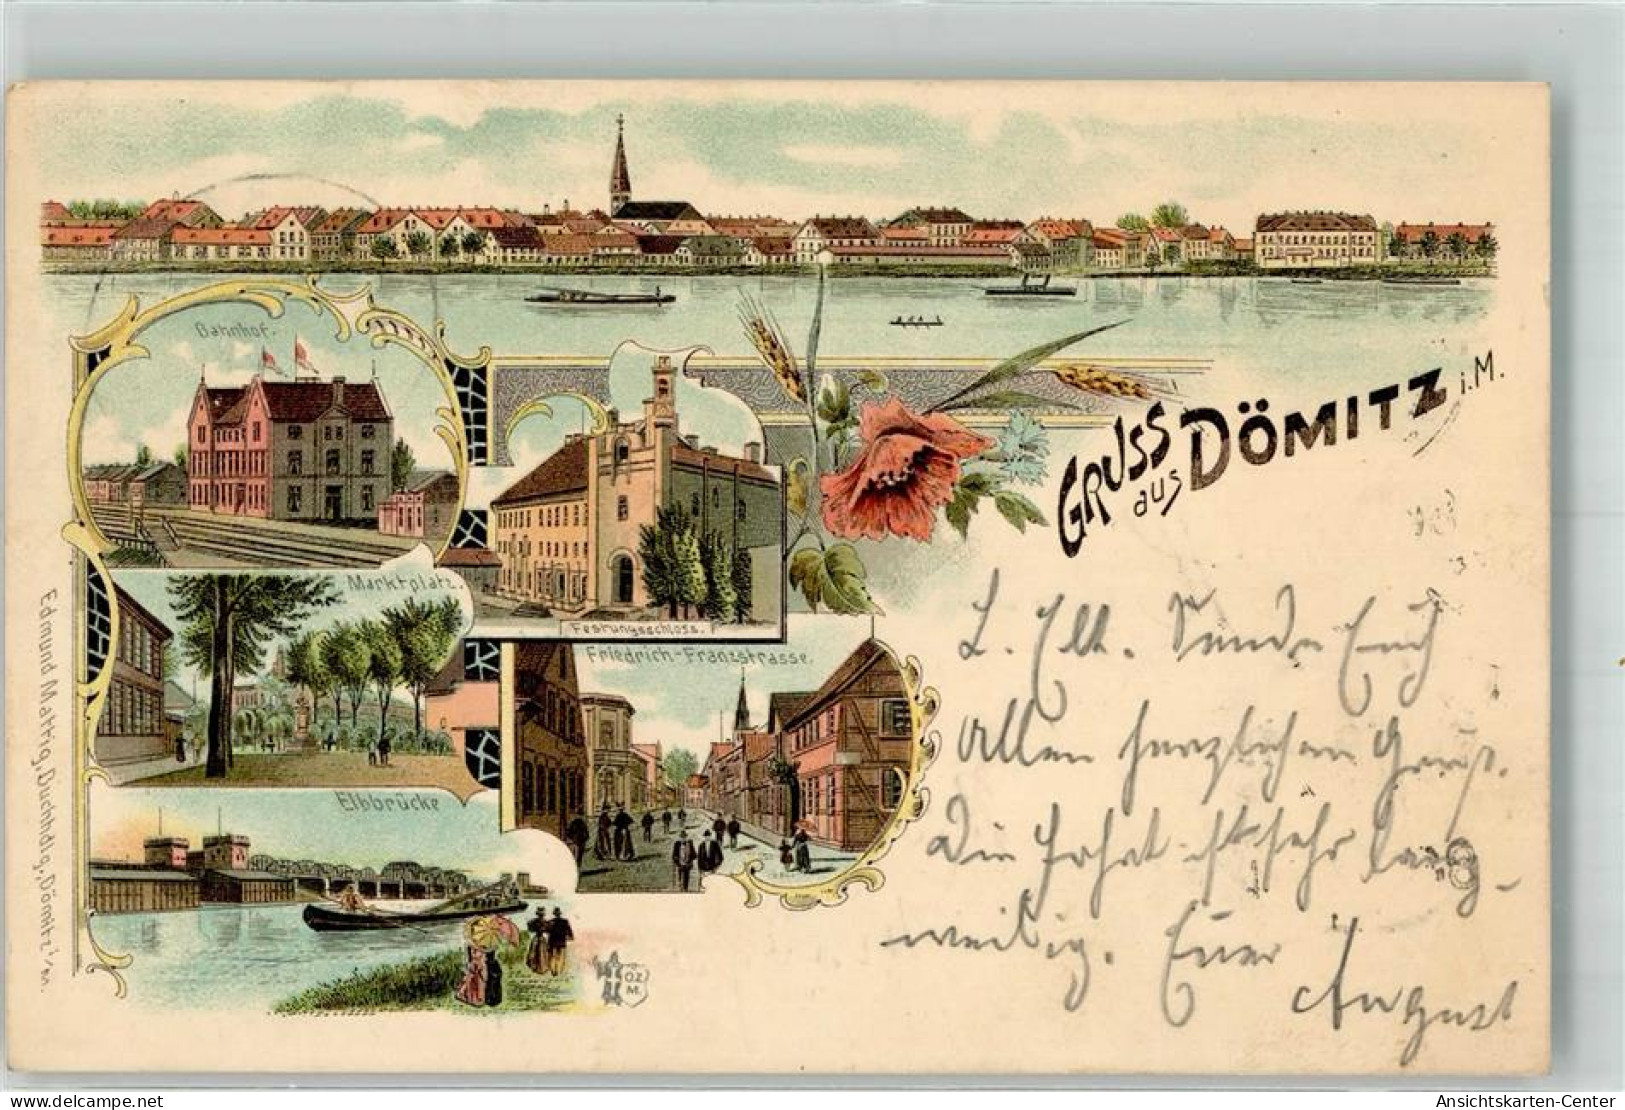 Bahnhof.
GRUSS
aus DÖMITZ i. M.
Marktplatz.
Festungsschloss.
Friedrich-Franzstrasse.
Elbbrücke
Edmund Mattig, Buchhdlg, Dömitz i/m.
O.Z.
M.
L. Elt. Sende Euch
Allen herzlichen Gruß.
Die Fahrt ist sehr lang-
weilig. Euer
August
delcampe.net
Ansichtskarten-Center